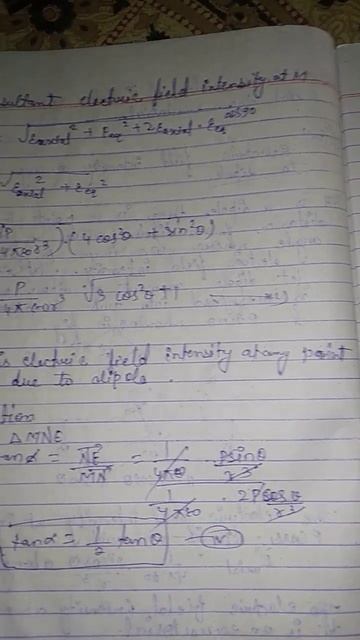 sultant electric field intensity at M
√E_axial² + E_eq² + 2E_axial · E_eq cos90
√E_axial² + E_eq²
(P/4πϵ0r³)² (4cos²θ + sin²θ)
P/4πϵ0r³ √3cos²θ+1
is electric field intensity at any point
due to dipole.
tion
ΔMNE
tanα = NE/MN = 1/4πϵ0 · Psinθ/r³
1/4πϵ0 · 2Pcosθ/r³
tanα = 1/2 tanθ